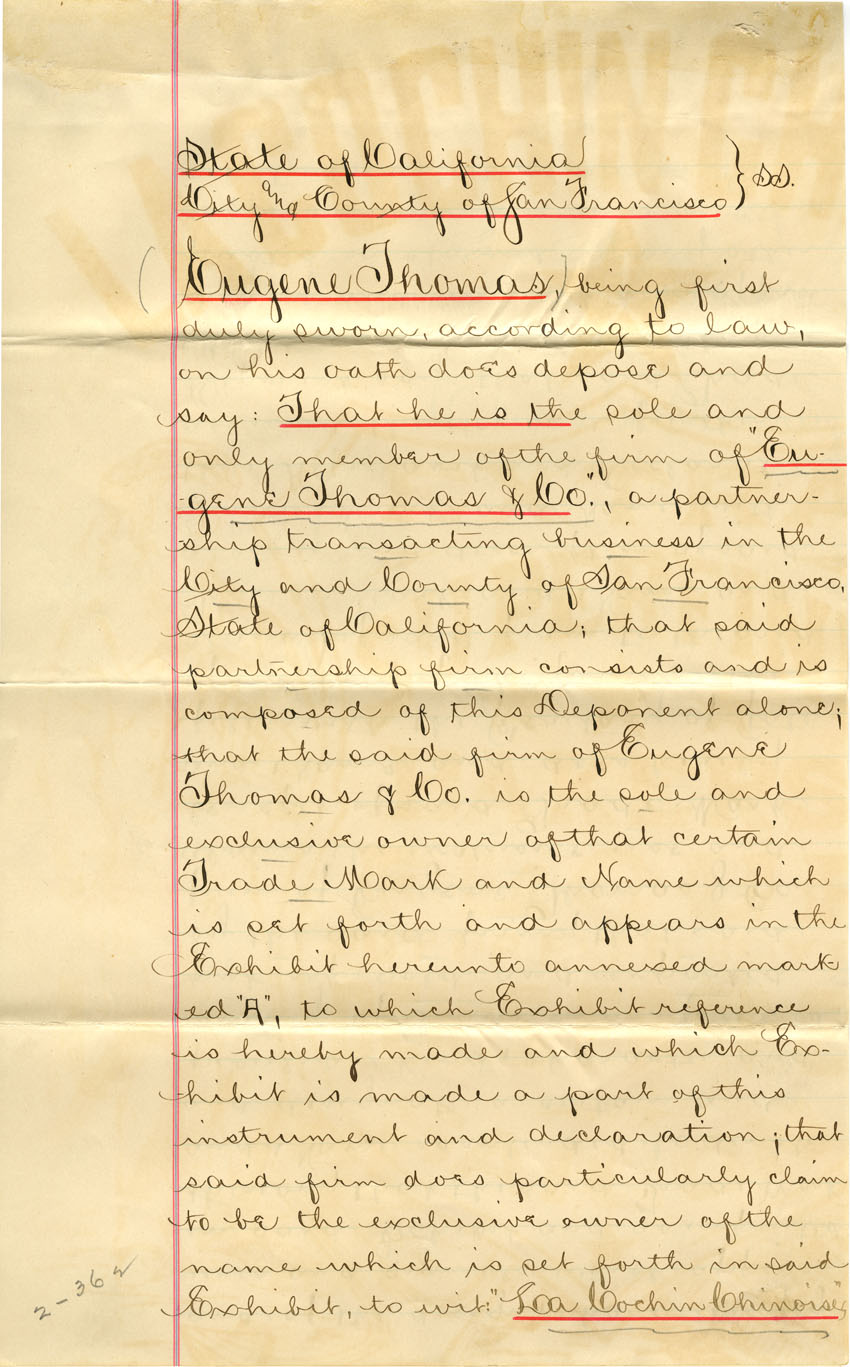 State of California
City and County of San Francisco } ss.
(Eugene Thomas,) being first
duly sworn, according to law,
on his oath does depose and
say: That he is the sole and
only member of the firm of "Eu-
-gene Thomas & Co.", a partner-
ship transacting business in the
City and County of San Francisco,
State of California; that said
partnership firm consists and is
composed of this Deponent alone;
that the said firm of Eugene
Thomas & Co. is the sole and
exclusive owner of that certain
Trade Mark and Name which
is set forth and appears in the
Exhibit hereunto annexed mark-
ed "A", to which Exhibit reference
is hereby made and which Ex-
hibit is made a part of this
instrument and declaration; that
said firm does particularly claim
to be the exclusive owner of the
name which is set forth in said
Exhibit, to wit: "La Cochin Chinoise",
2-362